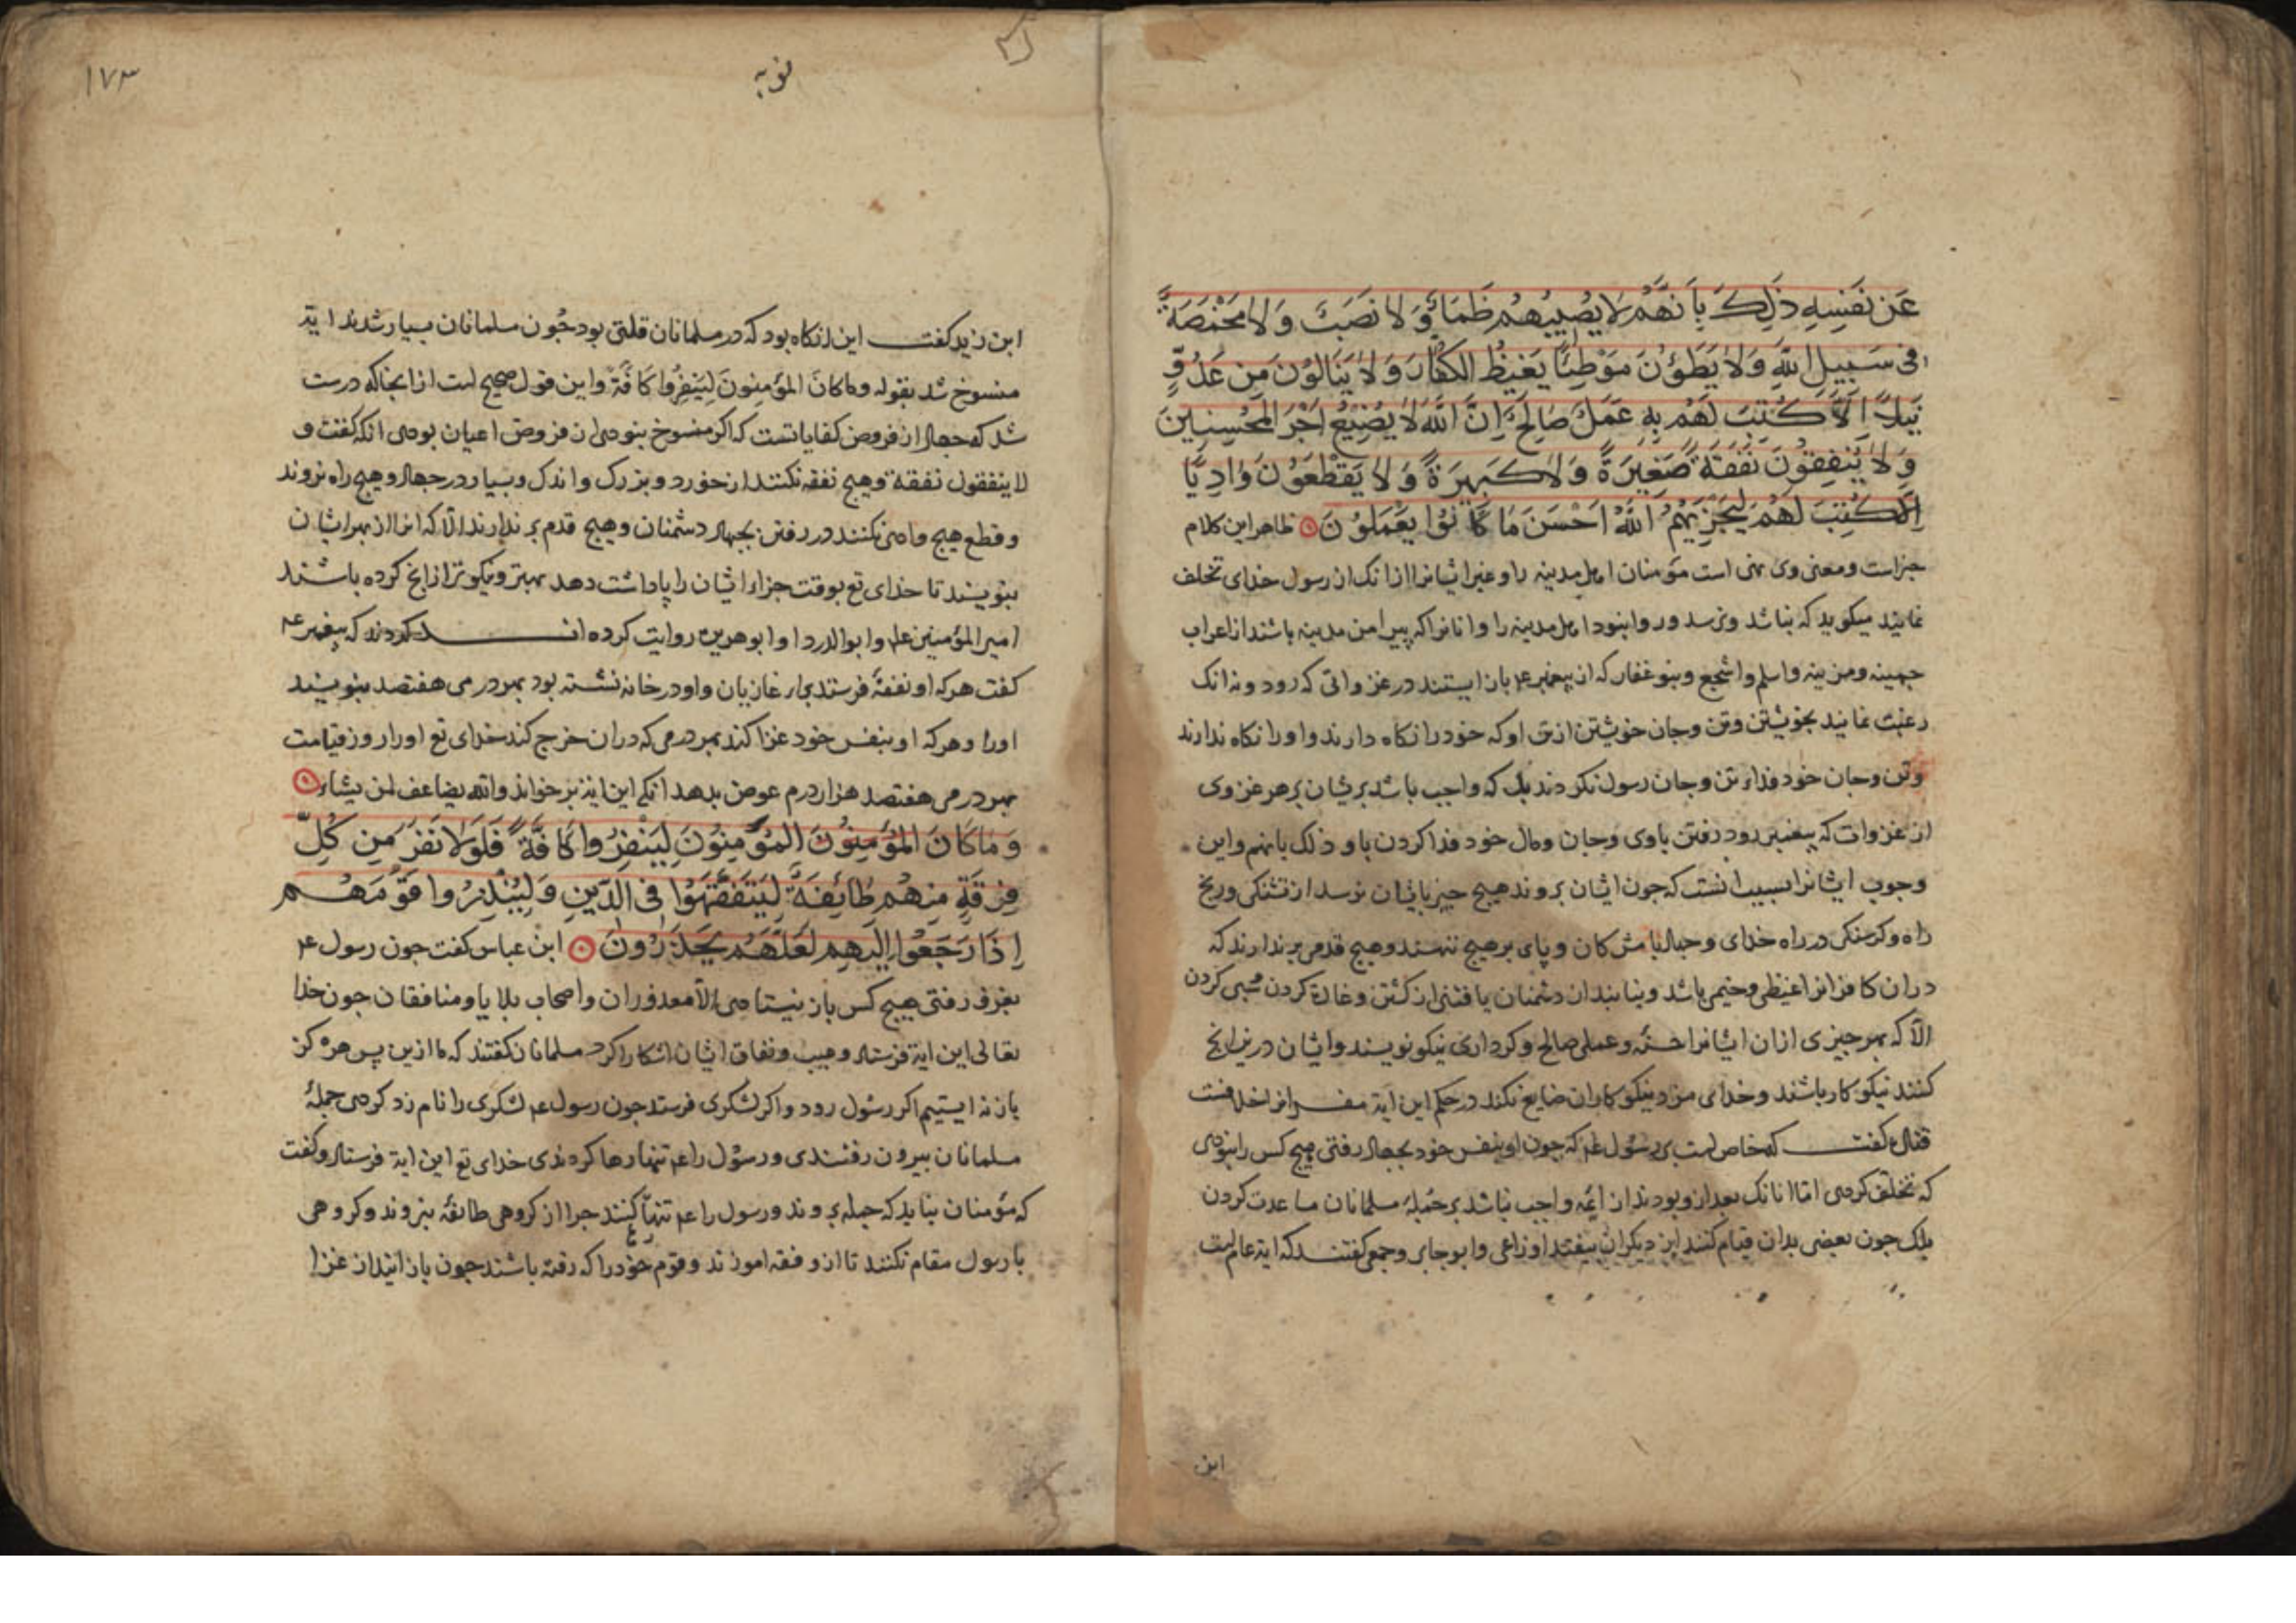 عَن نَفسِهِ ذَلِكَ بِاَنَّهُم لَا يُصِيبُهُم ظَمَاٌ وَلَا نَصَبٌ وَلَا مَخمَصَةٌ
فِى سَبِيلِ اللّهِ وَلَا يَطَؤُنَ مَوْطِئًا يَغِيظُ الكُفَّارَ وَلَا يَنَالُونَ مِن عَدُوٍّ
نَيلًا اِلَّا كُتِبَ لَهُم بِهِ عَمَلٌ صَالِحٌ اِنَّ اللّهَ لَا يُضِيعُ اَجْرَ المُحْسِنِينَ
وَلَا يُنفِقُونَ نَفَقَةً صَغِيرَةً وَلَا كَبِيرَةً وَلَا يَقْطَعُونَ وَادِيًا
اِلَّا كُتِبَ لَهُم لِيَجْزِيَهُمُ اللّهُ اَحْسَنَ مَا كَانُوْا يَعْمَلُونَ ظاهر اين كلام
خبراست ومعنى وى نهى است مؤمنان اهل مدينه را وغير ايشانرا از انك از رسول خداى تخلف
نمايند ميكويد كه نباشد ونرسد و روا نبود اهل مدينه را وانانرا كه پيرامن مدينه باشند از اعراب
جهينه ومزينه واسلم واشجع وبنو غفار كه از پيغمبر عم باز ايستند در غزواتى كه رود ونه انك
رغبت نمايند بخويشتن وتن وجان خويشتن ازتن او كه خود را نكاه دارند واو را نكاه ندارند
وتن وجان خود فداء تن وجان رسول نكردند بلكه واجب باشد بريشان بر هر غزوى
از غزوات كه پيغمبر رود رفتن باوى وجان ومال خود فدا كردن با او ذلك بانهم واين
وجوب ايشانرا بسبب انست كه جون ايشان بروند هيج جيز بايشان نرسد از تشنكى ورنج
راه وكرسنكى در راه خداى وجهاد با مشركان وپاى بر هيج ننهند وهيج قدمى برندارند كه
دران كافرانرا غيظى وخشمى باشد ونيابند از دشمنان يافتنى از كشتن وغارة كردن وسبى كردن
الّا كه بهر جيزى ازان ايشانرا حسنه وعملى صالح وكردارى نيكو نويسند وايشان درين انج
كنند نيكوكار باشند وخداى مزد نيكوكاران ضايع نكند در حكم اين اية مفسرانرا خلافست
قتاده كفت كه خاص است برسول عم كه جون او بنفس خود بجهاد رفتى هيج كس را نبودى
كه تخلف كردى امّا انانك بعد ازو بودند از ايمّه واجب نباشد بر جملهٔ مسلمانان مساعدت كردن
بلك جون بعضى بدان قيام كنند از ديكران بيفتد اوزاعى وابو جابر وجمعى كفتند كه اية عام است
ابن
١٧٣
توبه
ابن زيد كفت اين انكاه بود كه در مسلمانان قلتى بود جون مسلمانان بسيار شدند اية
منسوخ شد بقوله وماكانَ المؤمِنونَ لِيَنفِرُوا كَافَّةً واين قول صحيح است از انجا كه درست
شد كه جهاد از فروض كفاياتست كه اكر منسوخ نبودى از فروض اعيان بودى انكه كفت و
لا ينفقون نفقة وهيج نفقه نكنند از خورد و بزرك واندك وبسيار در جهاد وهيج راه نروند
وقطع هيج وادى نكنند در رفتن بجهاد دشمنان وهيج قدم برندارند الّا كه انرا از بهر ايشان
بنويسند تا خداى تع بوقت جزاء ايشان را پاداشت دهد بهتر ونيكوتر از انج كرده باشند
امير المؤمنين على وابو الدردا وابو هريره روايت كرده اند كردند كه پيغمبر عم
كفت هر كه او نفقهٔ فرستد براء غازيان واو در خانه نشسته بود بهر درمى هفتصد بنويسند
اورا وهر كه او بنفس خود غزا كند بهر درمى كه دران خرج كند خداى تع اورا روز قيامت
بهر درمى هفتصد هزار درم عوض بدهد انكى اين اية بر خواند والله يضاعف لمن يشاء
وَمَاكَانَ المُؤمِنُونَ المُؤمِنُونَ لِيَنفِرُوا كَافَّةً فَلَولَا نَفَرَ مِن كُلِّ
فِرقَةٍ مِنهُم طَائِفَةٌ لِيَتَفَقَّهُوْا فِى الدِّينِ وَلِيُنْذِرُوا قَوْمَهُم
اِذَا رَجَعُوا اِلَيهِم لَعَلَّهُم يَحذَرُونَ ابن عباس كفت جون رسول عم
بغزو رفتى هيج كس باز نيستادى الّا معذوران واصحاب بلايا ومنافقان جون خدا
تعالى اين اية فرستاد وعيب ونفاق ايشان اشكارا كرد مسلمانان كفتند كه ما ازين پس هركز
باز نه ايستيم اكر رسول رود واكر لشكرى فرستد جون رسول عم لشكرى را نام زد كردى جملهٔ
مسلمانان بيرون رفتندى ورسول را عم تنها رها كردندى خداى تع اين اية فرستاد وكفت
كه مؤمنان نبايد كه جمله بروند ورسول را عم تنها كنند جرا از كروهى طائفهٔ بنروند وكروهى
با رسول مقام نكنند تا ازو فقه اموزند وقوم خود را كه رفته باشند جون باز ايند از غزا